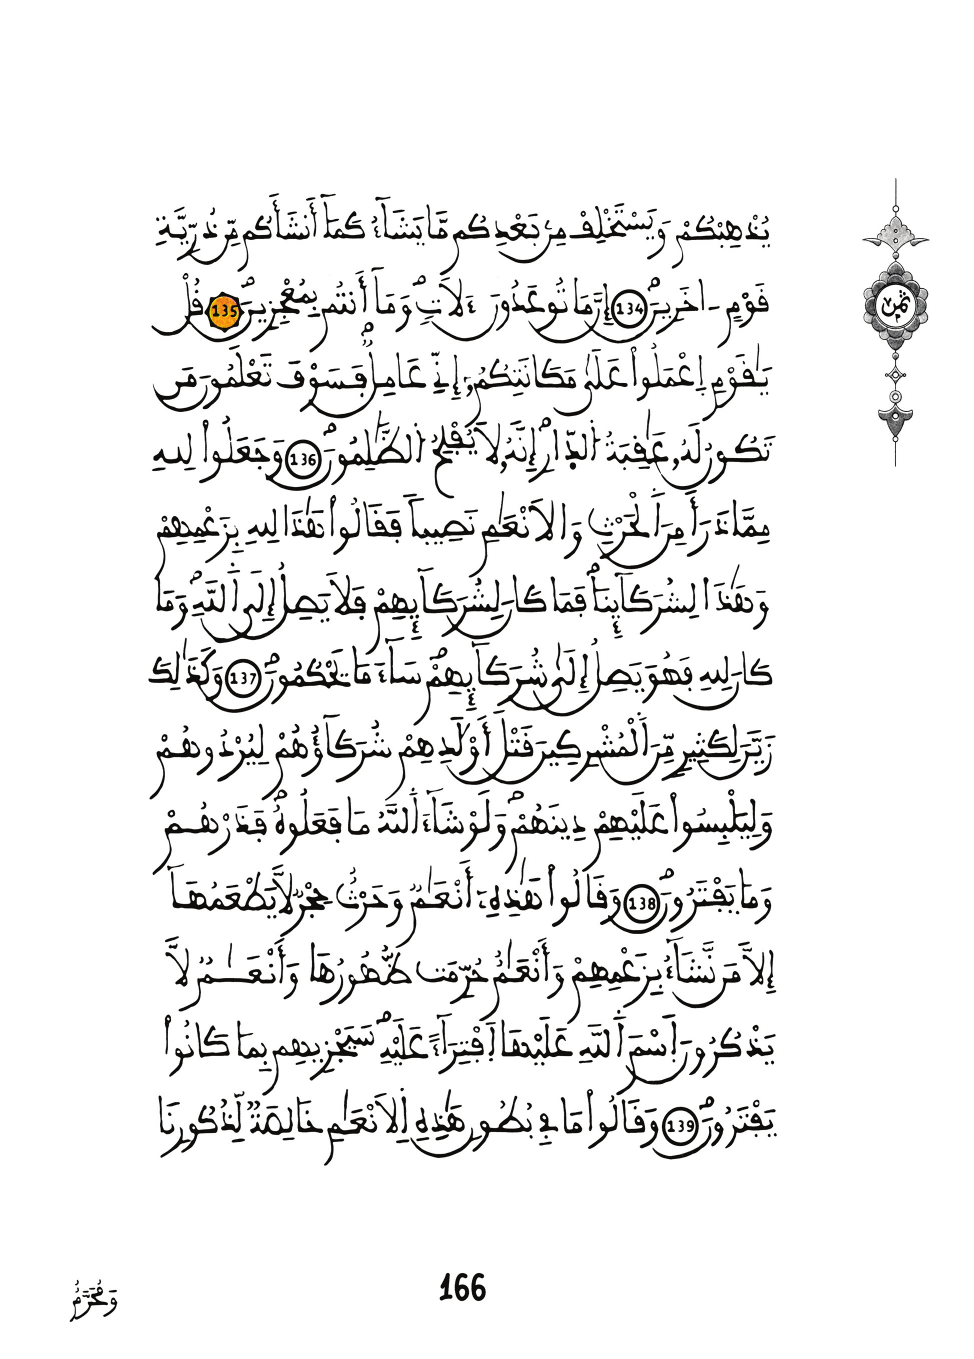 يُذْهِبْكُمْ وَيَسْتَخْلِفْ مِنۢ بَعْدِكُم مَّا يَشَآءُ كَمَآ أَنشَأَكُم مِّن ذُرِّيَّةِ
ثمن
قَوْمٍ اٰخَرِينَ 134 إِنَّ مَا تُوعَدُونَ ءَلَاتٖ وَمَآ أَنتُم بِمُعْجِزِينَ 135 قُلْ
يَٰقَوْمِ اِعْمَلُوا۟ عَلَىٰ مَكَانَتِكُمُۥٓ إِنِّے عَامِلٞ فَسَوْفَ تَعْلَمُونَ مَن
تَكُونُ لَهُۥ عَٰقِبَةُ اُ۬لدّ۪ارِ إِنَّهُۥ لَا يُفْلِحُ اُ۬لظَّٰلِمُونَ 136 وَجَعَلُوا۟ لِلهِ
مِمَّا ذَرَأَ مِنَ اَ۬لْحَرْثِ وَالَانْعَٰمِ نَصِيباٗ فَقَالُوا۟ هَٰذَا لِلهِ بِزَعْمِهِمْ
وَهَٰذَا لِشُرَكَآئِنَا فَمَا كَانَ لِشُرَكَآئِهِمْ فَلَا يَصِلُ إِلَى اَ۬للَّهِ وَمَا
كَانَ لِلهِ فَهُوَ يَصِلُ إِلَىٰ شُرَكَآئِهِمْ سَآءَ مَا يَحْكُمُونَ 137 وَكَذَٰلِكَ
زَيَّنَ لِكَثِيرٖ مِّنَ اَ۬لْمُشْرِكِينَ قَتْلَ أَوْلَٰدِهِمْ شُرَكَآؤُهُمْ لِيُرْدُوهُمْ
وَلِيَلْبِسُوا۟ عَلَيْهِمْ دِينَهُمْ وَلَوْ شَآءَ اَ۬للَّهُ مَا فَعَلُوهُ فَذَرْهُمْ
وَمَا يَفْتَرُونَ 138 وَقَالُوا۟ هَٰذِهِۦٓ أَنْعَٰمٞ وَحَرْثٌ حِجْرٞ لَّا يَطْعَمُهَآ
إِلَّا مَن نَّشَآءُ بِزَعْمِهِمْ وَأَنْعَٰمٌ حُرِّمَتْ ظُهُورُهَا وَأَنْعَٰمٞ لَّا
يَذْكُرُونَ اَ۪سْمَ اَ۬للَّهِ عَلَيْهَا اَ۪فْتِرَآءً عَلَيْهِ سَيَجْزِيهِم بِمَا كَانُوا۟
يَفْتَرُونَ 139 وَقَالُوا۟ مَا فِے بُطُونِ هَٰذِهِ اِ۬لَانْعَٰمِ خَالِصَةٞ لِّذُكُورِنَا
وَمُحَرَّمٌ
166